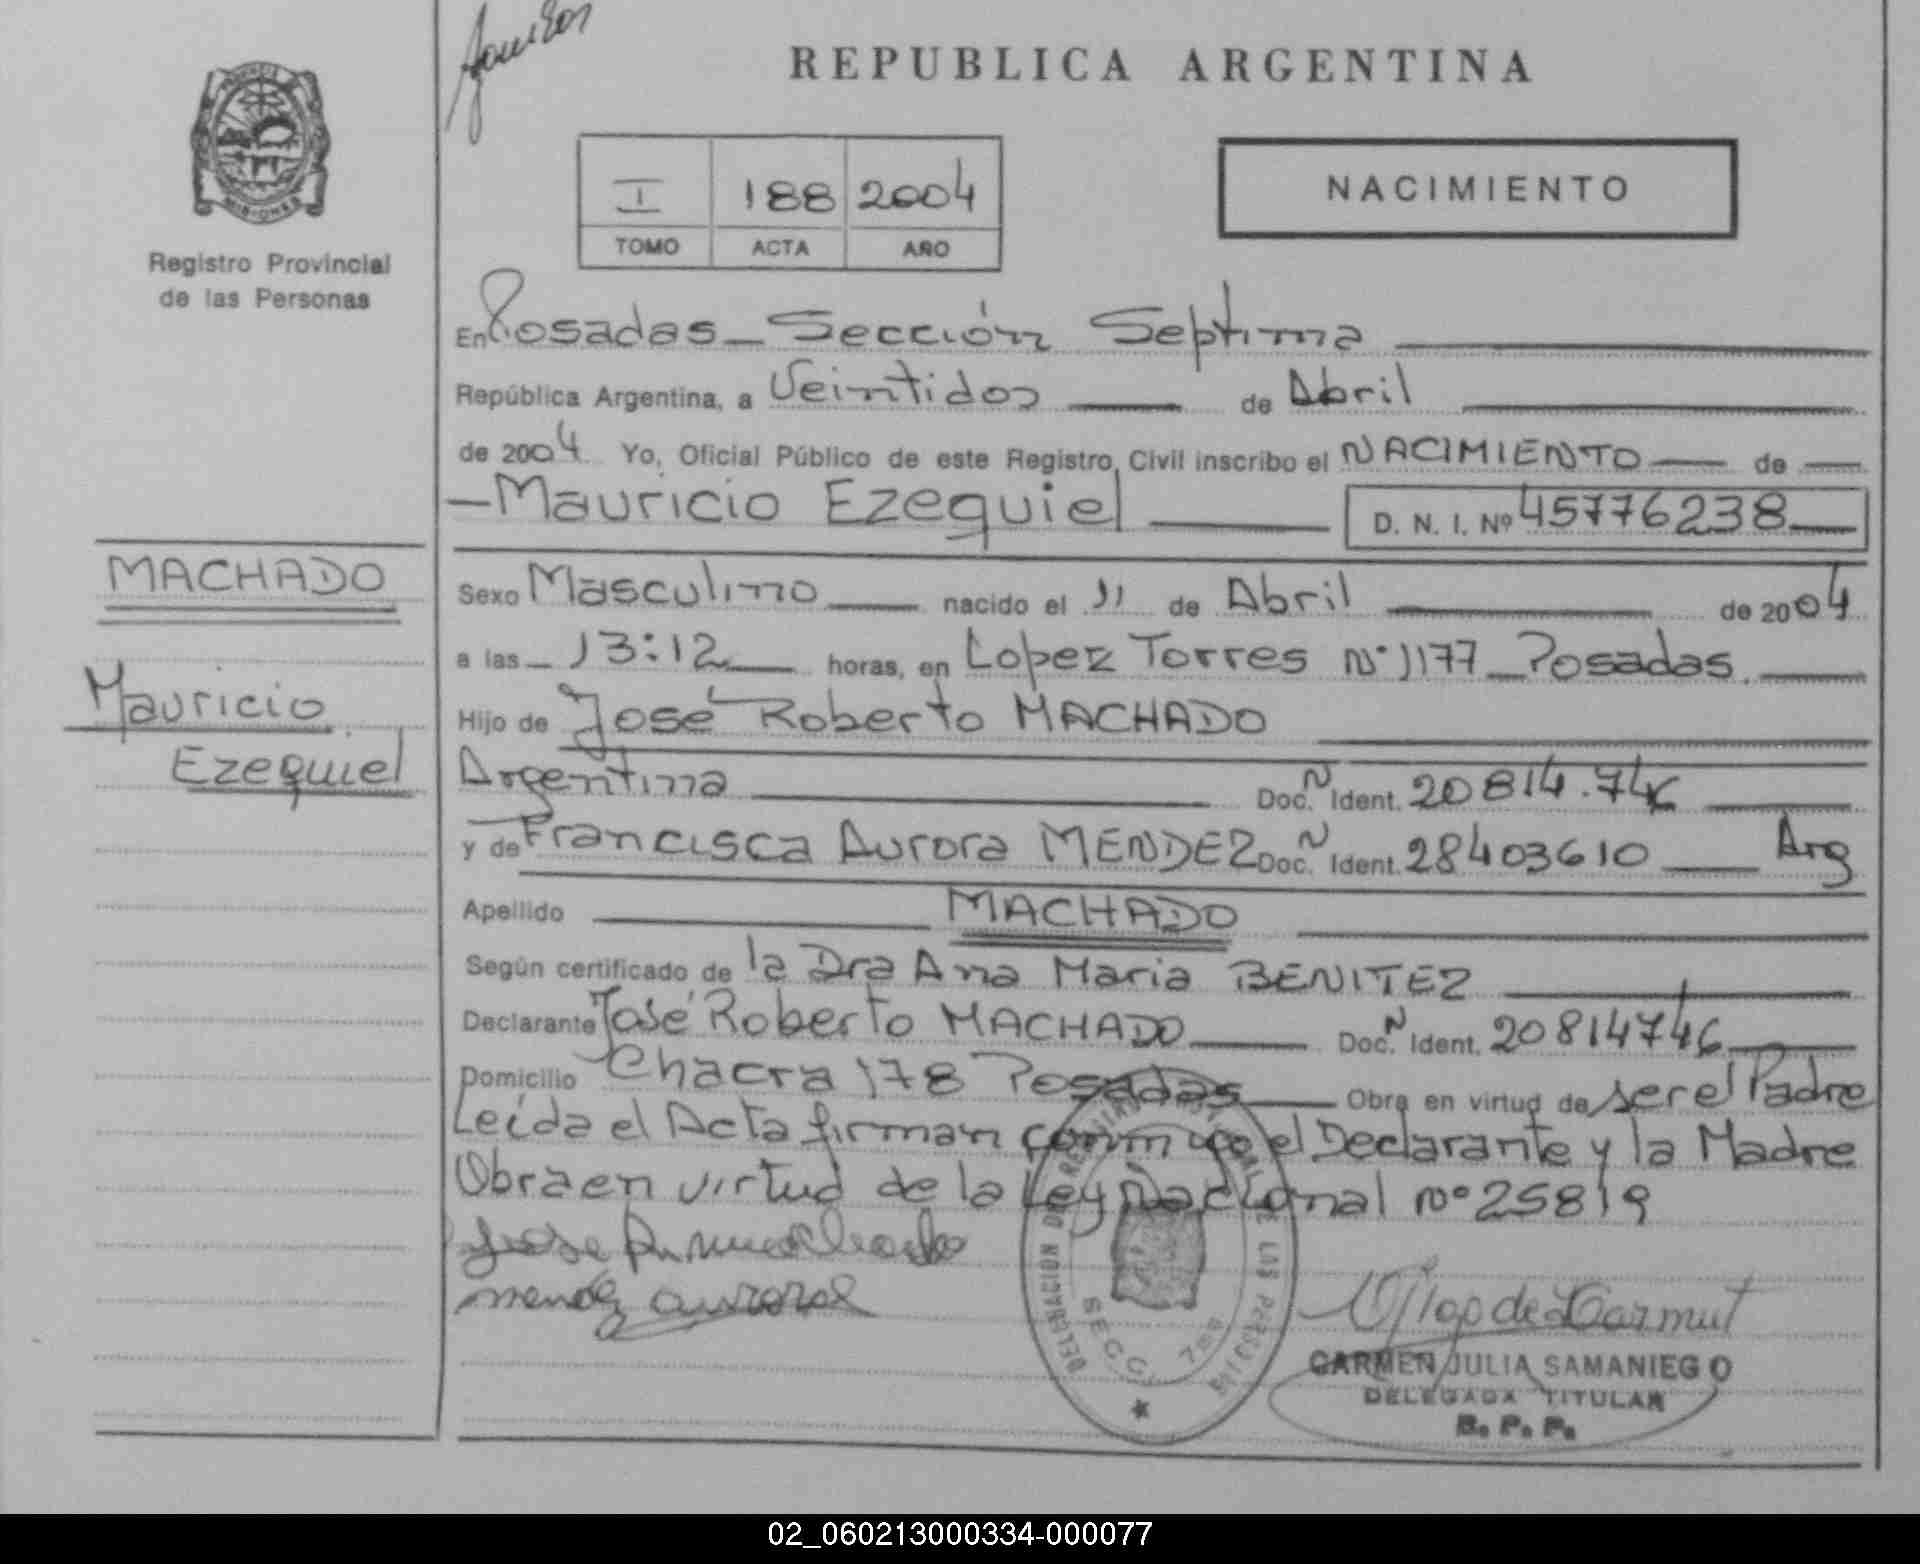 REPUBLICA ARGENTINA
MISIONES
Registro Provincial
de las Personas
I 188 2004
TOMO ACTA AÑO
NACIMIENTO
En Posadas - Sección Septima
República Argentina, a Veintidos de Abril
de 2004. Yo, Oficial Público de este Registro Civil inscribo el NACIMIENTO de
- Mauricio Ezequiel D. N. I. Nº 45776238
MACHADO
Mauricio
Ezequiel
Sexo Masculino nacido el 11 de Abril de 2004
a las 13:12 horas, en Lopez Torres Nº 1177 Posadas.
Hijo de José Roberto MACHADO
Argentina Doc. N Ident. 20814.746
y de Francisca Aurora MENDEZ Doc. N Ident. 28403610 Arg
Apellido MACHADO
Según certificado de la Dra Ana Maria BENITEZ
Declarante José Roberto MACHADO Doc. N Ident. 20814746
Domicilio Chacra 178 Posadas Obra en virtud de ser el Padre
Leída el Acta firman conmigo el Declarante y la Madre
Obra en virtud de la Ley Nacional Nº 25819
Jose R. Machado
mendez aurora
DELEGACION DE REGISTRO PROVINCIAL DE LAS PERSONAS
SECC. 7ma
CARMEN JULIA SAMANIEGO
DELEGADA TITULAR
R. P. P.
02_060213000334-000077